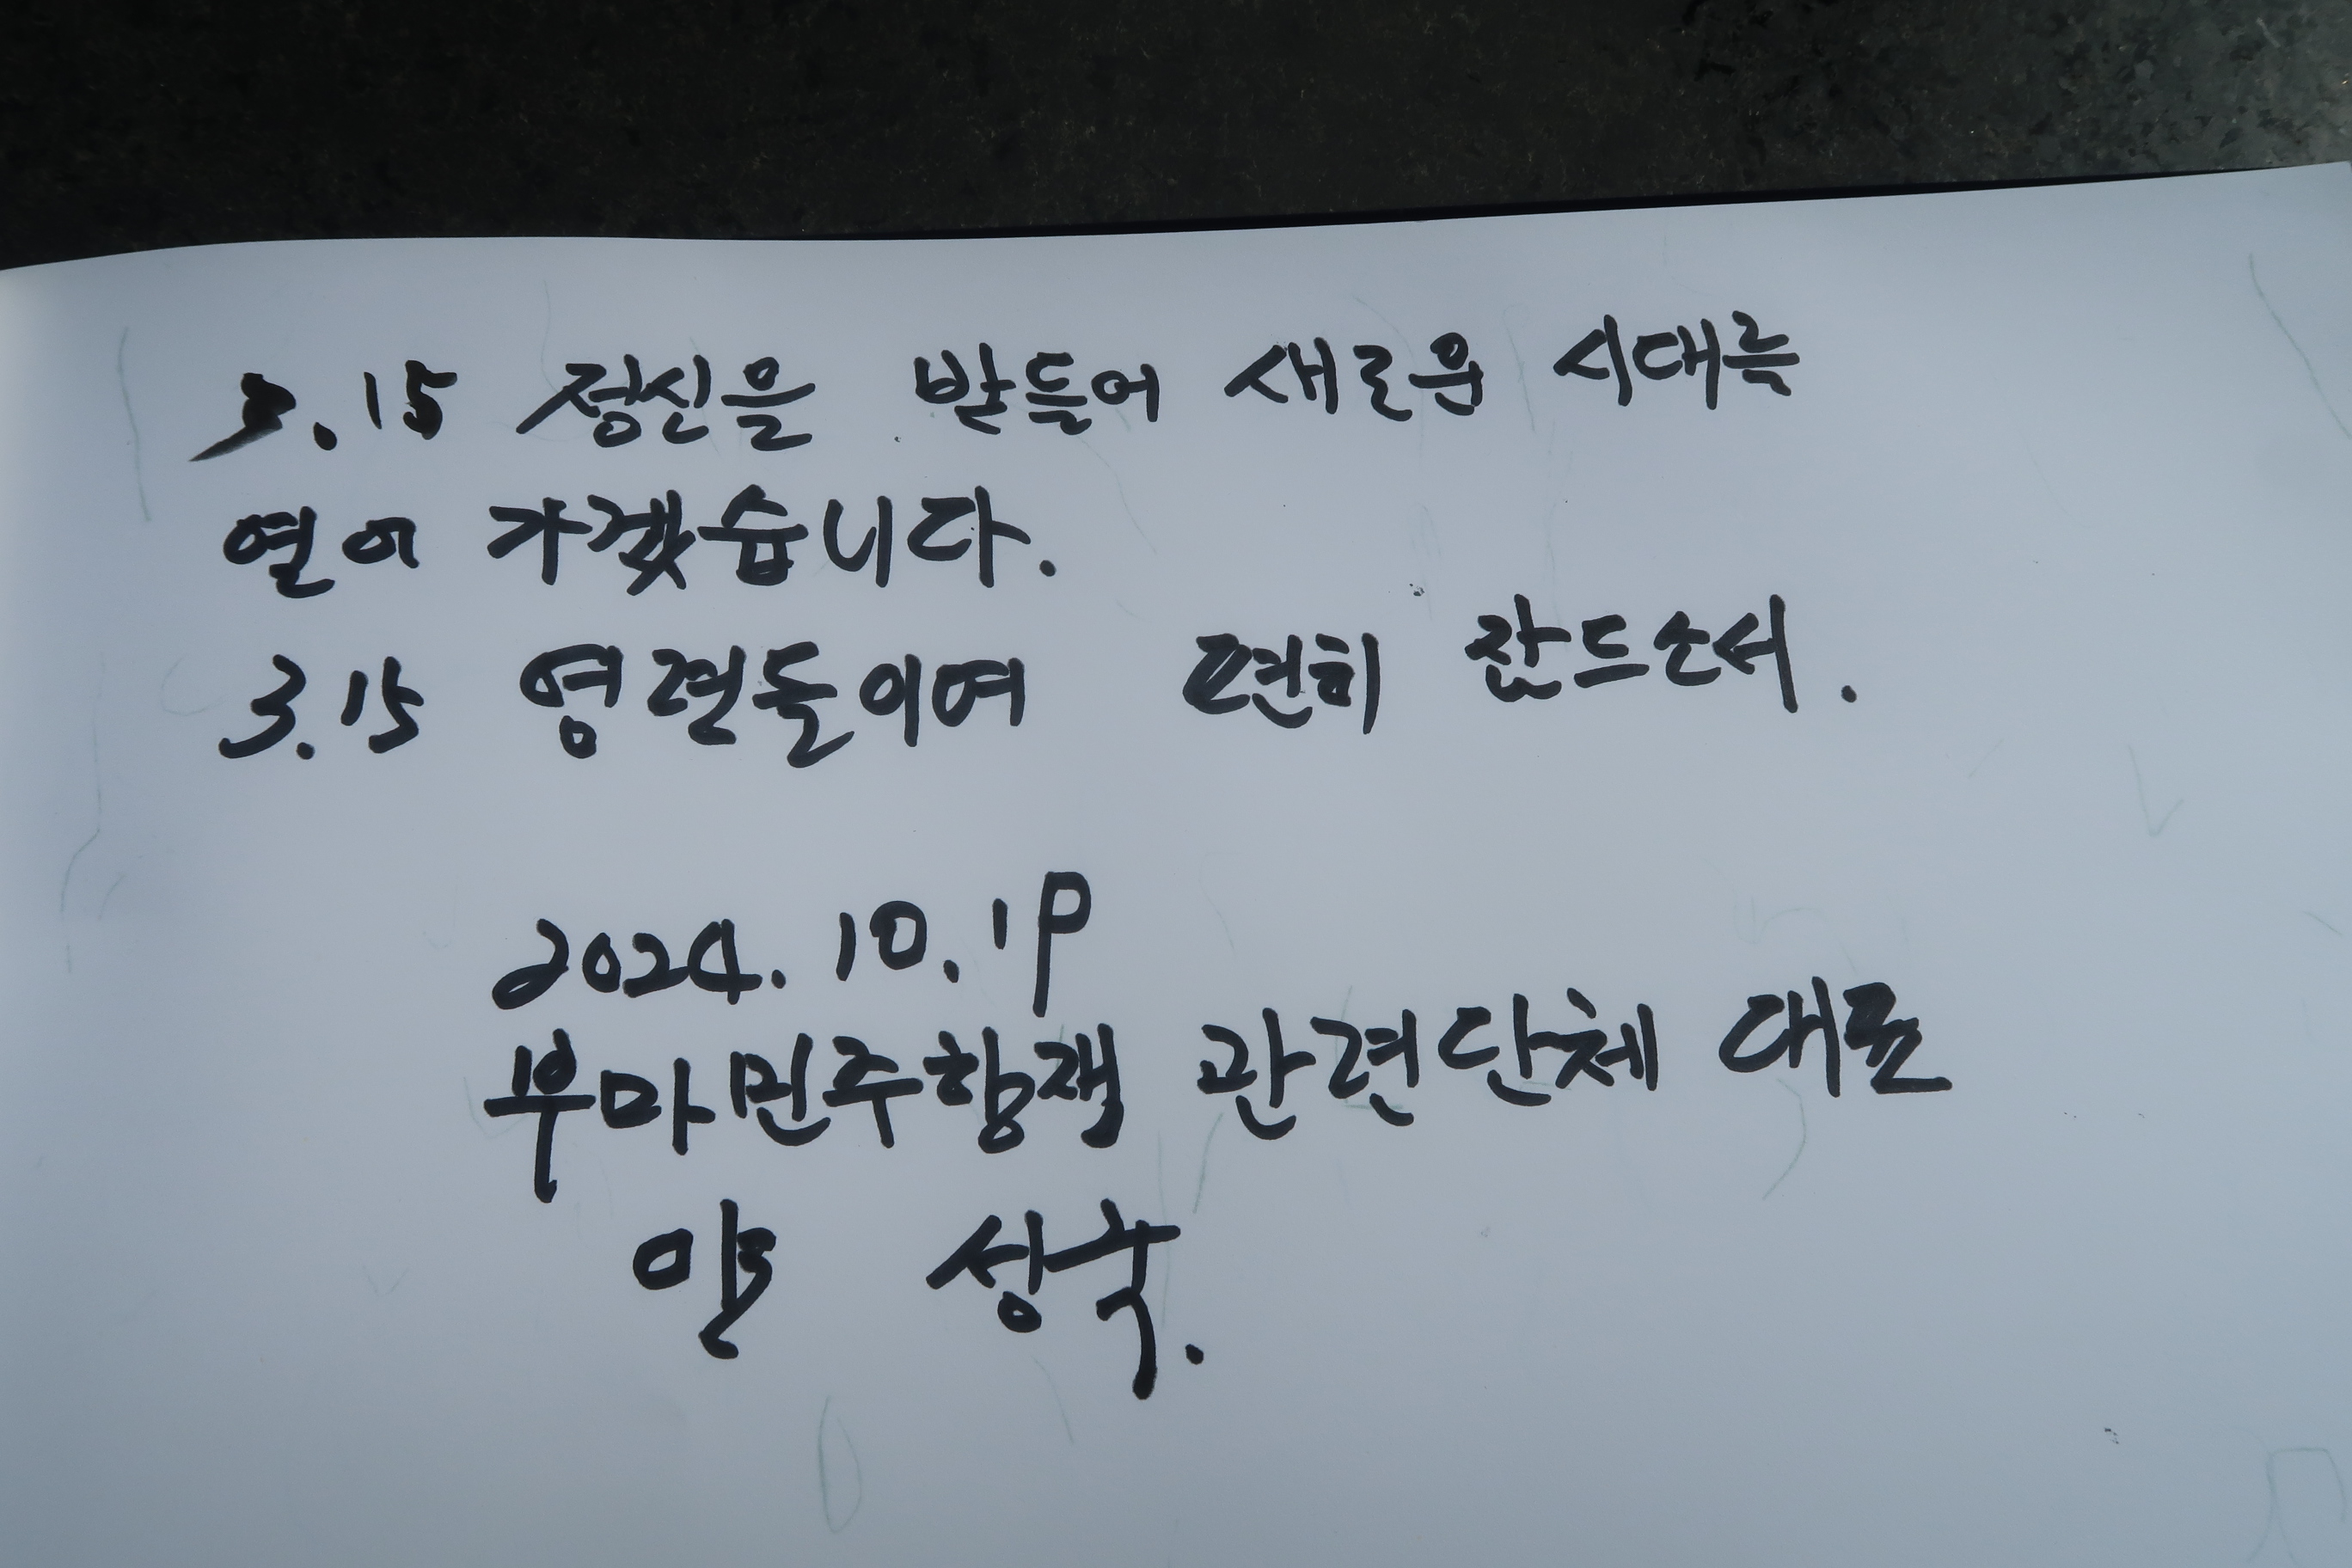 3.15 정신을 받들어 새로운 시대를
열어 가겠습니다.
3.15 영령들이여 편히 잠드소서.
2024. 10. 19
부마민주항쟁 관련단체 대표
성국.